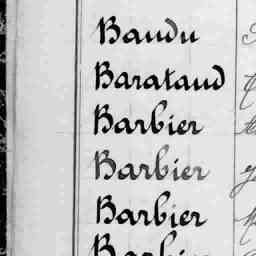 Baudu
Barataud
Barbier
Barbier
Barbier
Barbier